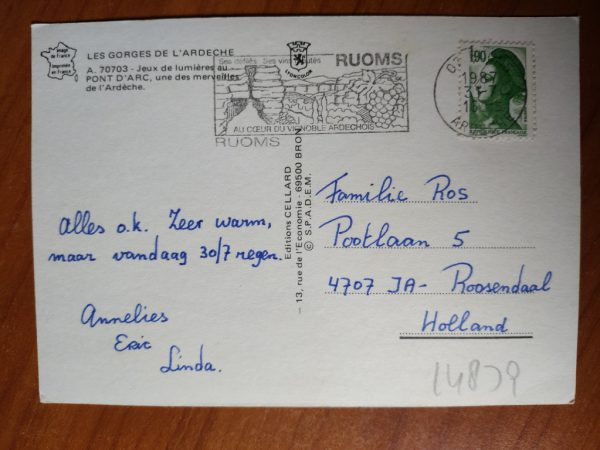 image
de France
imprimée
en France
LES GORGES DE L'ARDECHE
A. 70703 - Jeux de lumières au
PONT D'ARC, une des merveilles
de l'Ardèche.
Ses défilés Ses vins
RUOMS
AU CŒUR DU VIGNOBLE ARDECHOIS
RUOMS
1,90
1987
Alles o.k. Zeer warm,
maar vandaag 30/7 regen.
Annelies
Eric
Linda.
Editions CELLARD
— 13, rue de l'Economie - 69500 BRON
© S.P.A.D.E.M.
Familie Ros
Pootlaan 5
4707 JA - Roosendaal
Holland